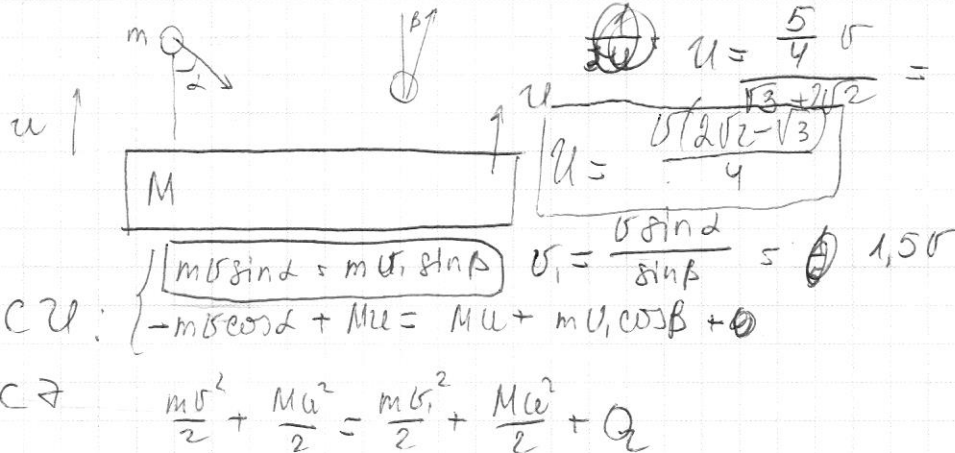 m α β
u = 5/4 v / (√3 + 2√2) =
u u
u = v(2√2 − √3) / 4
M
mv sinα = mv₁ sinβ v₁ = v sinα / sinβ = 1,5v
СИ: −mv cosα + Mu = Mu + mv₁ cosβ +
СЭ mv²/2 + Mu²/2 = mv₁²/2 + Mu²/2 + Q